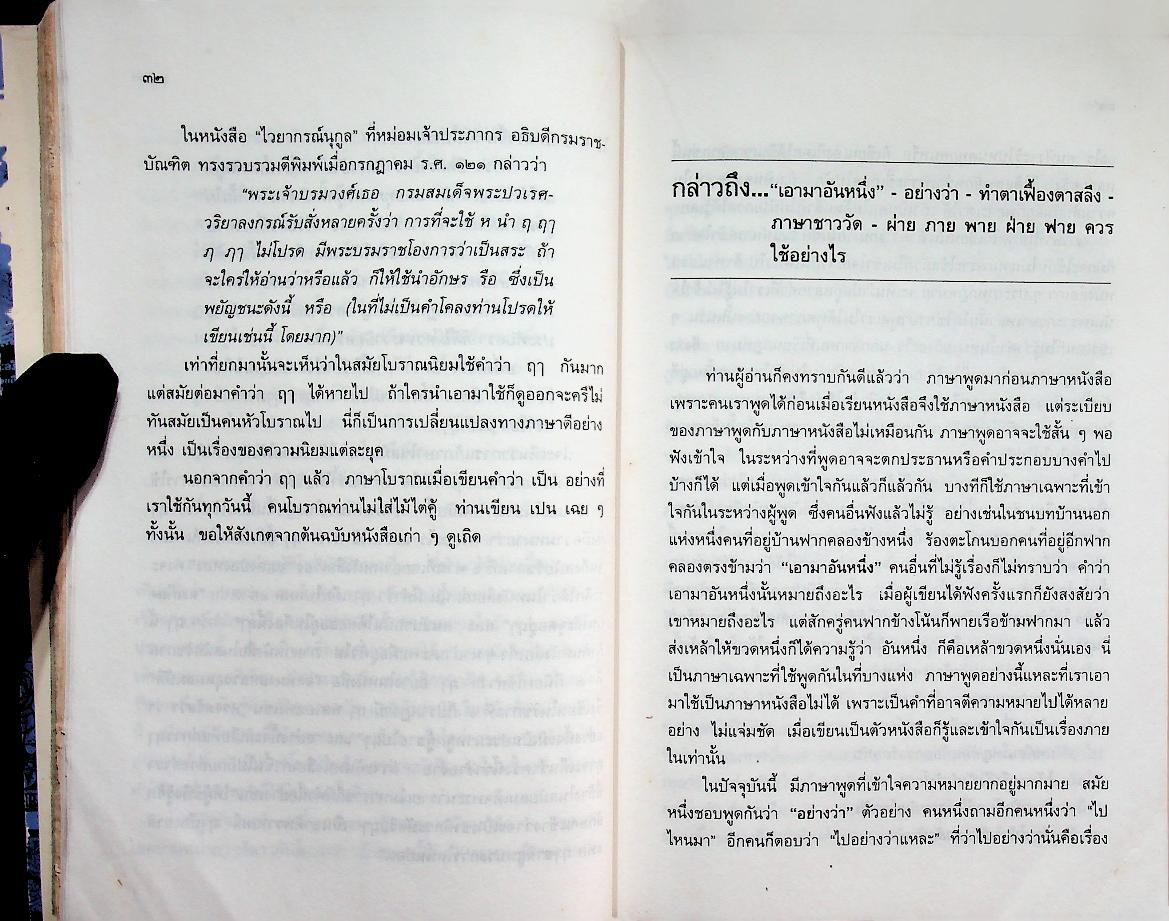 ๓๒
ในหนังสือ “ไวยากรณ์นุกูล” ที่หม่อมเจ้าประภากร อธิบดีกรมราช-
บัณฑิต ทรงรวบรวมตีพิมพ์เมื่อกรกฎาคม ร.ศ. ๑๒๑ กล่าวว่า
“พระเจ้าบรมวงศ์เธอ กรมสมเด็จพระปวเรศ-
วริยาลงกรณ์รับสั่งหลายครั้งว่า การที่จะใช้ ห นำ ฤ ฤๅ
ฦ ฦๅ ไม่โปรด มีพระบรมราชโองการว่าเป็นสระ ถ้า
จะใคร่ให้อ่านว่าหรือแล้ว ก็ให้ใช้นำอักษร รือ ซึ่งเป็น
พยัญชนะดังนี้ หรือ (ในที่ไม่เป็นคำโคลงท่านโปรดให้
เขียนเช่นนี้ โดยมาก)”
เท่าที่ยกมานั้นจะเห็นว่าในสมัยโบราณนิยมใช้คำว่า ฤๅ กันมาก
แต่สมัยต่อมาคำว่า ฤๅ ได้หายไป ถ้าใครนำเอามาใช้ก็ดูออกจะครึไม่
ทันสมัยเป็นคนหัวโบราณไป นี่ก็เป็นการเปลี่ยนแปลงทางภาษาดีอย่าง
หนึ่ง เป็นเรื่องของความนิยมแต่ละยุค
นอกจากคำว่า ฤๅ แล้ว ภาษาโบราณเมื่อเขียนคำว่า เป็น อย่างที่
เราใช้กันทุกวันนี้ คนโบราณท่านไม่ใส่ไม้ไต่คู้ ท่านเขียน เปน เฉย ๆ
ทั้งนั้น ขอให้สังเกตจากต้นฉบับหนังสือเก่า ๆ ดูเถิด
กล่าวถึง... “เอามาอันหนึ่ง” - อย่างว่า - ทำตาเฟื้องตาสลึง -
ภาษาชาววัด - ผ่าย ภาย พาย ฝ่าย ฟาย ควร
ใช้อย่างไร
ท่านผู้อ่านก็คงทราบกันดีแล้วว่า ภาษาพูดมาก่อนภาษาหนังสือ
เพราะคนเราพูดได้ก่อนเมื่อเรียนหนังสือจึงใช้ภาษาหนังสือ แต่ระเบียบ
ของภาษาพูดกับภาษาหนังสือไม่เหมือนกัน ภาษาพูดอาจจะใช้สั้น ๆ พอ
ฟังเข้าใจ ในระหว่างที่พูดอาจจะตกประธานหรือคำประกอบบางคำไป
บ้างก็ได้ แต่เมื่อพูดเข้าใจกันแล้วก็แล้วกัน บางทีก็ใช้ภาษาเฉพาะที่เข้า
ใจกันในระหว่างผู้พูด ซึ่งคนอื่นฟังแล้วไม่รู้ อย่างเช่นในชนบทบ้านนอก
แห่งหนึ่งคนที่อยู่บ้านฟากคลองข้างหนึ่ง ร้องตะโกนบอกคนที่อยู่อีกฟาก
คลองตรงข้ามว่า “เอามาอันหนึ่ง” คนอื่นที่ไม่รู้เรื่องก็ไม่ทราบว่า คำว่า
เอามาอันหนึ่งนั้นหมายถึงอะไร เมื่อผู้เขียนได้ฟังครั้งแรกก็ยังสงสัยว่า
เขาหมายถึงอะไร แต่สักครู่คนฟากข้างโน้นก็พายเรือข้ามฟากมา แล้ว
ส่งเหล้าให้ขวดหนึ่งก็ได้ความรู้ว่า อันหนึ่ง ก็คือเหล้าขวดหนึ่งนั่นเอง นี่
เป็นภาษาเฉพาะที่ใช้พูดกันในที่บางแห่ง ภาษาพูดอย่างนี้แหละที่เราเอา
มาใช้เป็นภาษาหนังสือไม่ได้ เพราะเป็นคำที่อาจตีความหมายไปได้หลาย
อย่าง ไม่แจ่มชัด เมื่อเขียนเป็นตัวหนังสือก็รู้และเข้าใจกันเป็นเรื่องภาย
ในเท่านั้น
ในปัจจุบันนี้ มีภาษาพูดที่เข้าใจความหมายยากอยู่มากมาย สมัย
หนึ่งชอบพูดกันว่า “อย่างว่า” ตัวอย่าง คนหนึ่งถามอีกคนหนึ่งว่า “ไป
ไหนมา” อีกคนก็ตอบว่า “ไปอย่างว่าแหละ” ที่ว่าไปอย่างว่านั่นคือเรื่อง